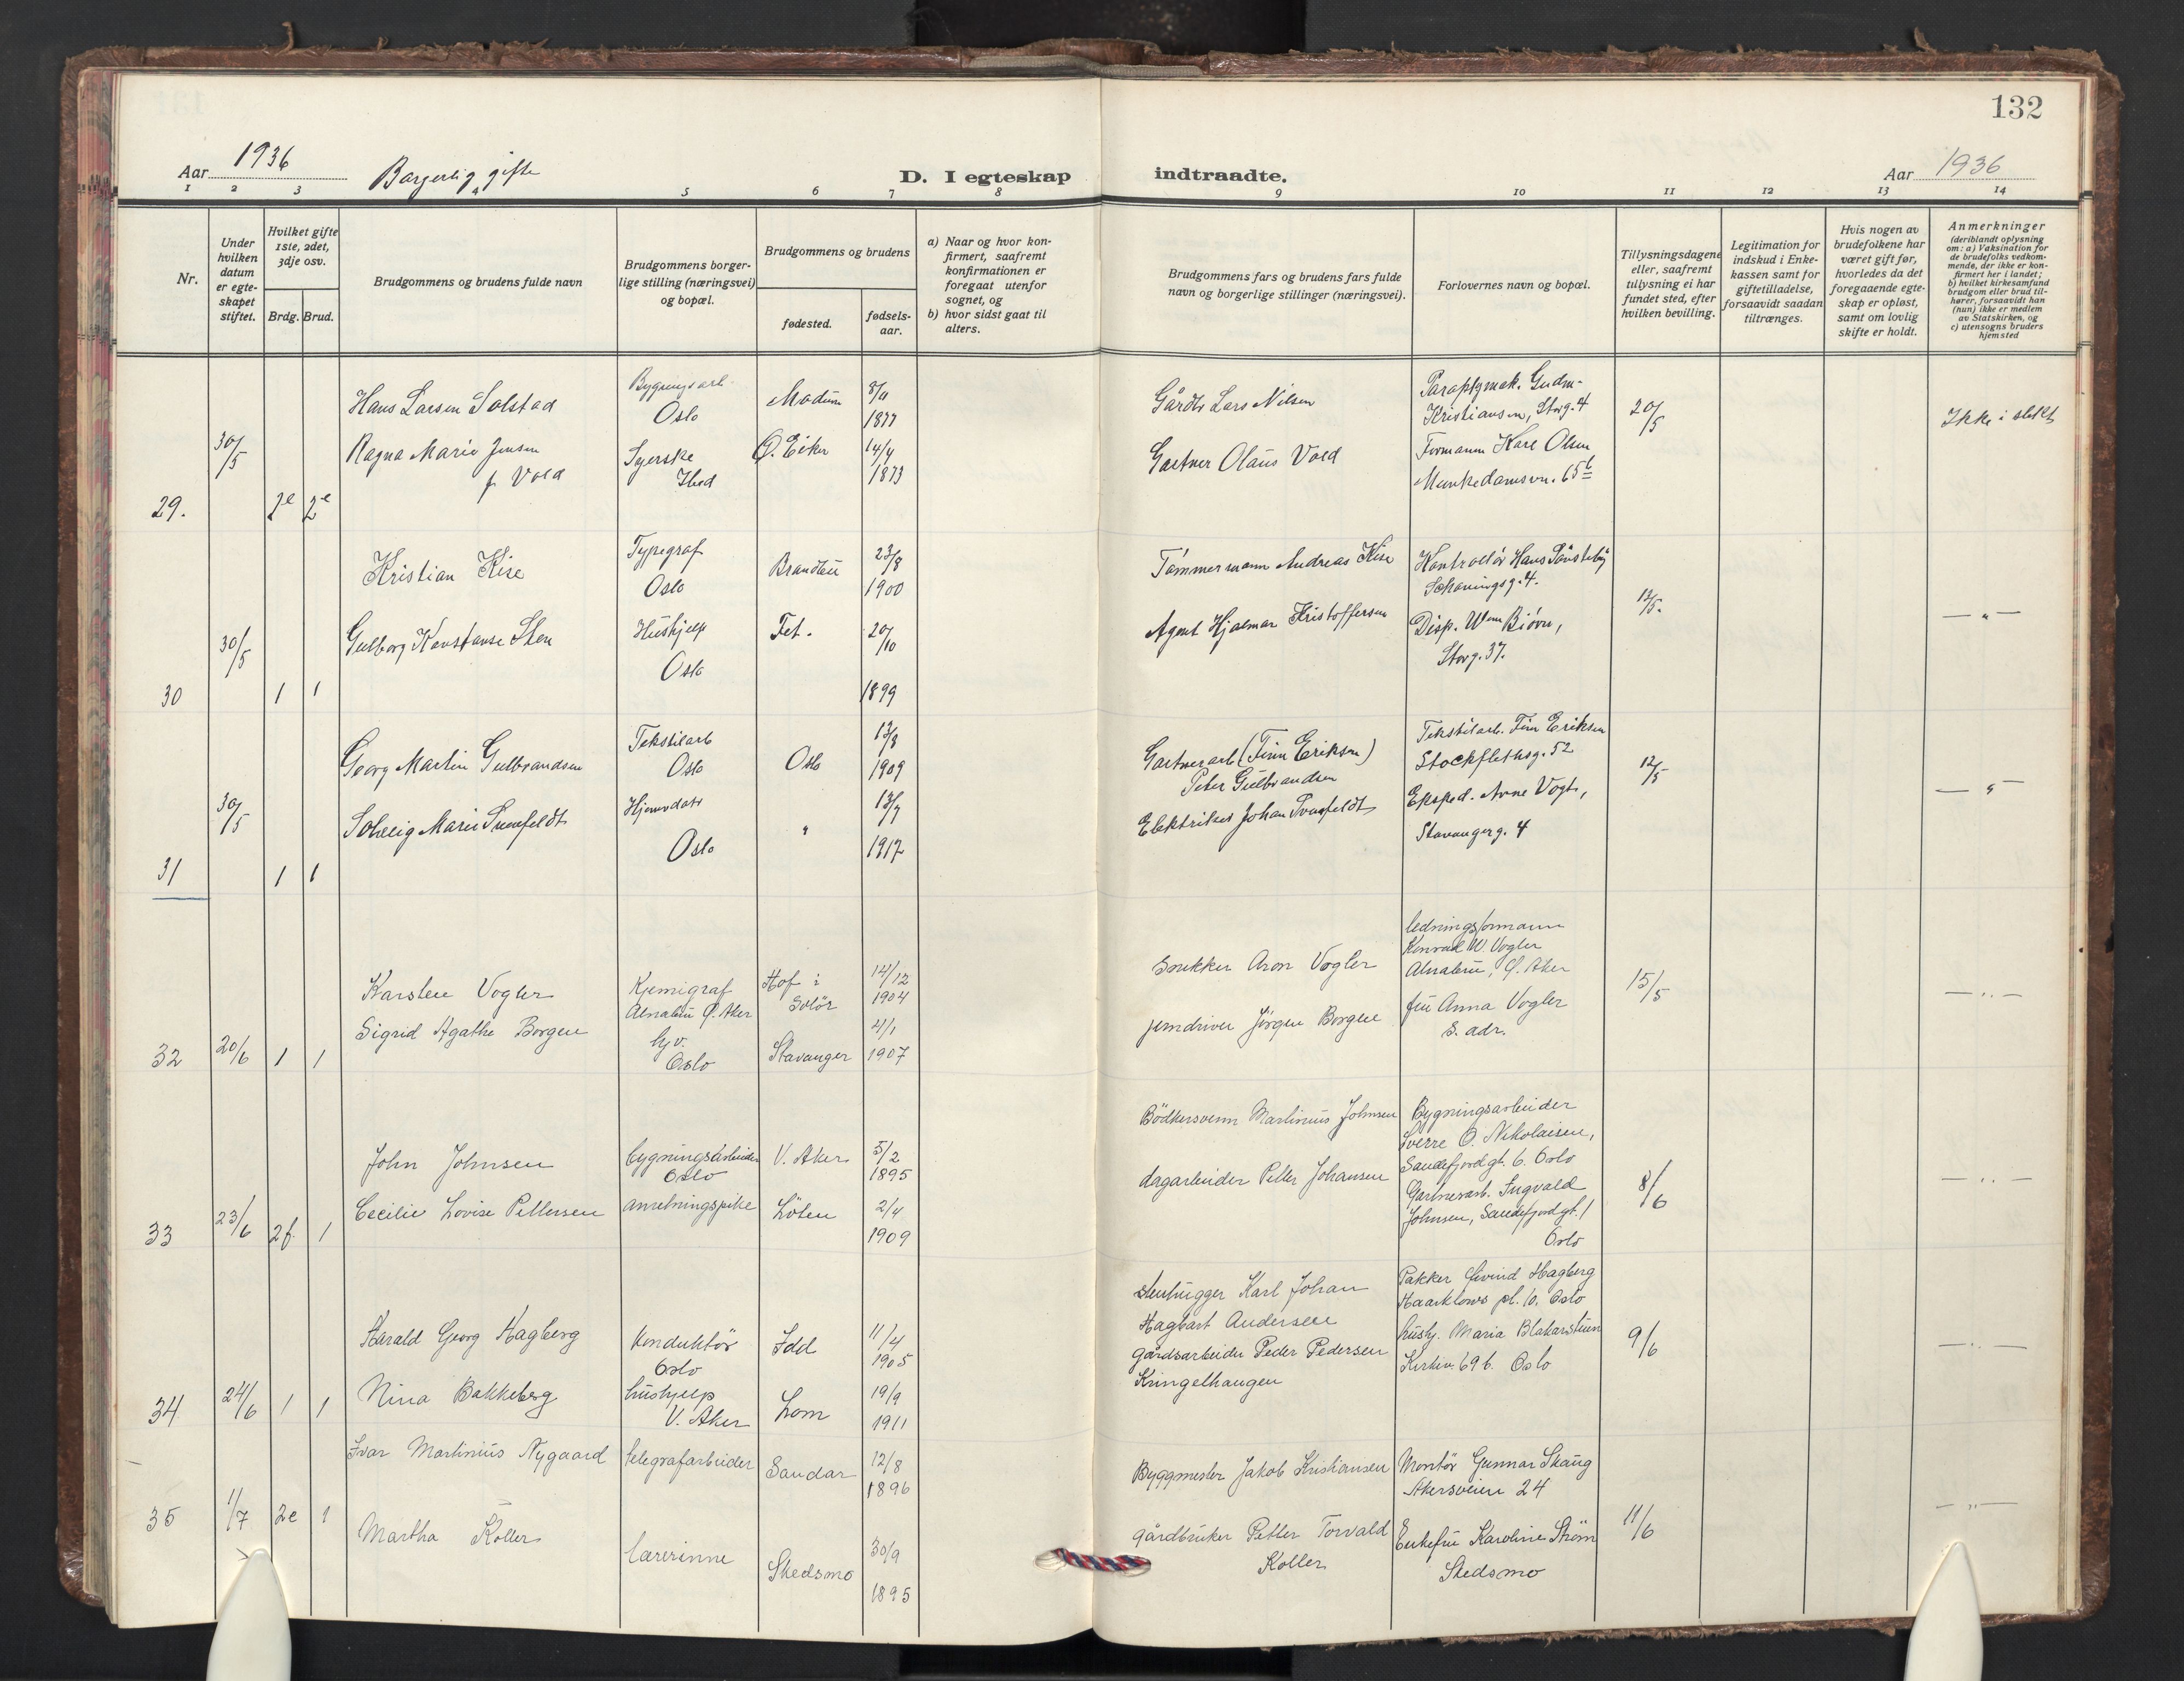 132
Aar 1936
Borgerlig gifte
D. I egteskap
indtraadte.
Aar 1936
1 2 3 4 5 6 7 8 9 10 11 12 13 14
Nr.
Under hvilken datum er egteskapet stiftet.
Hvilket gifte 1ste, 2det, 3dje osv.
Brdg. Brud.
Brudgommens og brudens fulde navn
Brudgommens borgerlige stilling (næringsvei) og bopæl.
Brudgommens og brudens
fødested.
fødselsaar.
a) Naar og hvor konfirmert, saafremt konfirmationen er foregaat utenfor sognet, og
b) hvor sidst gaat til alters.
Brudgommens fars og brudens fars fulde navn og borgerlige stillinger (næringsvei).
Forlovernes navn og bopæl.
Tillysningsdagene eller, saafremt tillysning ei har fundet sted, efter hvilken bevilling.
Legitimation for indskud i Enkekassen samt for giftetilladelse, forsaavidt saadan tiltrænges.
Hvis nogen av brudefolkene har været gift før, hvorledes da det foregaaende egteskap er opløst, samt om lovlig skifte er holdt.
Anmerkninger
(deriblandt oplysning om: a) Vaksination for de brudefolks vedkommende, der ikke er konfirmert her i landet; b) hvilket kirkesamfund brudgom eller brud tilhører, forsaavidt han (hun) ikke er medlem av Statskirken, og c) utensogns bruders hjemsted
29. 30/5 2e 2e
Hans Larsen Solstad
Bygningsarb. Oslo
Modum 8/11 1877
Ragna Marie Jensen f. Vold
Syerske Ibid
Ø. Eiker 14/4 1873
Gårdbr Lars Nilsen
Gartner Olaus Vold
Paraplymak. Gudm. Kristiansen, Storg. 4
Formann Karl Olsen
Munkedamsvn. 65b
20/5
Ikke i slekt
30 30/5 1 1
Kristian Kise
Typograf Oslo
Brandbu 23/8 1900
Gulborg Konstanse Sten
Hushjelp Oslo
Fet. 20/10 1899
Tømmermann Andreas Kise
Agent Hjalmar Kristoffersen
Kontrollør Hans Sønsteby
Schøningsg. 4.
Disp. Wm Bjørn,
Storg. 37.
12/5.
— " —
31 30/5 1 1
Georg Martin Gulbrandsen
Tekstilarb Oslo
Oslo 13/8 1909
Solveig Marie Svenfeldt
Hjemvdatr Oslo
" 13/7 1917
Gartnerarb (Finn Eriksen)
Peter Gulbrandsen
Elektriker Johan Svenfeldt
Tekstilarb. Finn Eriksen
Stockflethsg. 52
Eksped. Arne Vogt,
Stavangerg. 4
12/5
— " —
32 20/6 1 1
Karsten Vogler
Kjemigraf Alnabru Ø. Aker
Hof i Solør 14/12 1904
Sigrid Agathe Borgen
hjv. Oslo
Stavanger 4/1 1907
Snekker Aron Vogler
jerndriver Jörgen Borgen
ledningsformann
Konrad W Vogler
Alnabru, Ø. Aker
fru Anna Vogler
s. adr.
15/5
— " —
33 23/6 2f. 1
John Johnsen
bygningsarbeider Oslo
V. Aker 5/2 1895
Cecilie Lovise Pettersen
anretningspike
Löten 2/4 1909
Bödkersvenn Martinius Johnsen
dagarbeider Petter Johansen
Bygningsarbeider
Sverre O. Nikolaisen,
Sandefjordgt. 6. Oslo
Gartnerarb. Ingvald
Johnsen, Sandefjordgt. 1
Oslo
8/6
— " —
34 24/6 1 1
Harald Georg Hagberg
Konduktör Oslo
Idd 11/4 1905
Nina Bakkeberg
hushjelp V. Aker
Lom 19/9 1911
Stenhugger Karl Johan
Hagbart Andersen
gårdsarbeider Peder Pedersen
Kringelhaugen
Pakker Øivind Hagberg
Haarklows pl. 10. Oslo
hushj. Maria Blakarstuen
Kirkev. 69 b. Oslo
9/6
— " —
35 1/7 2e 1
Ivar Martinius Nygaard
telegrafarbeider
Sandar 12/8 1896
Martha Koller
lærerinne
Skedsmo 30/9 1895
Byggmester Jakob Kristiansen
gårdbruker Petter Torvald
Koller
Montör Gunnar Skaug
Akersveien 24
Enkefru Karoline Ström
Skedsmo
11/6
— " —